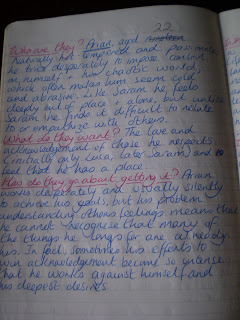 22
Who are they? Arain, aged
Naturally hot tempered and passionate
he tries desperately to impose control
on himself + his chaotic world,
which often makes him seem cold
and abrasive. Like Saram he feels
deeply out of place + alone, but unlike
Saram he finds it difficult to relate
to or empathize with others.
What do they want? The love and
acknowledgement of those he respects
(initially only Lusa, later Saram) and to
feel that he has a place.
How do they go about getting it? Arain
tries desperately and usually silently
to achieve his goals, but his problem
understanding others feelings means that
he cannot recognise that many of
the things he longs for are already
his. In fact, sometimes his efforts to
win acknowledgement become so intense
that he works against himself and
his deepest desires.